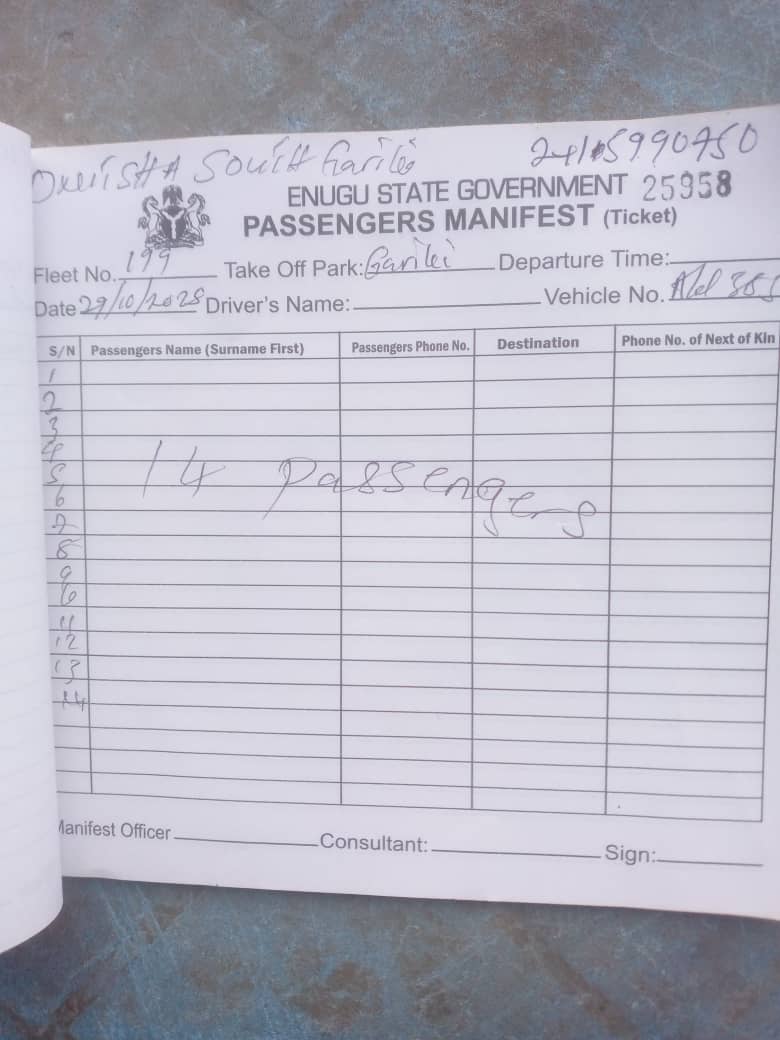 ONITSHA SOUTH Gariki 24105990750
ENUGU STATE GOVERNMENT 25958
PASSENGERS MANIFEST (Ticket)
Fleet No. 199 Take Off Park: Gariki Departure Time:
Date 29/10/2025 Driver's Name: Vehicle No.
S/N Passengers Name (Surname First) Passengers Phone No. Destination Phone No. of Next of Kin
1
2
3
4
5
14 Passengers
6
7
8
9
10
11
12
13
14
Manifest Officer Consultant: Sign: